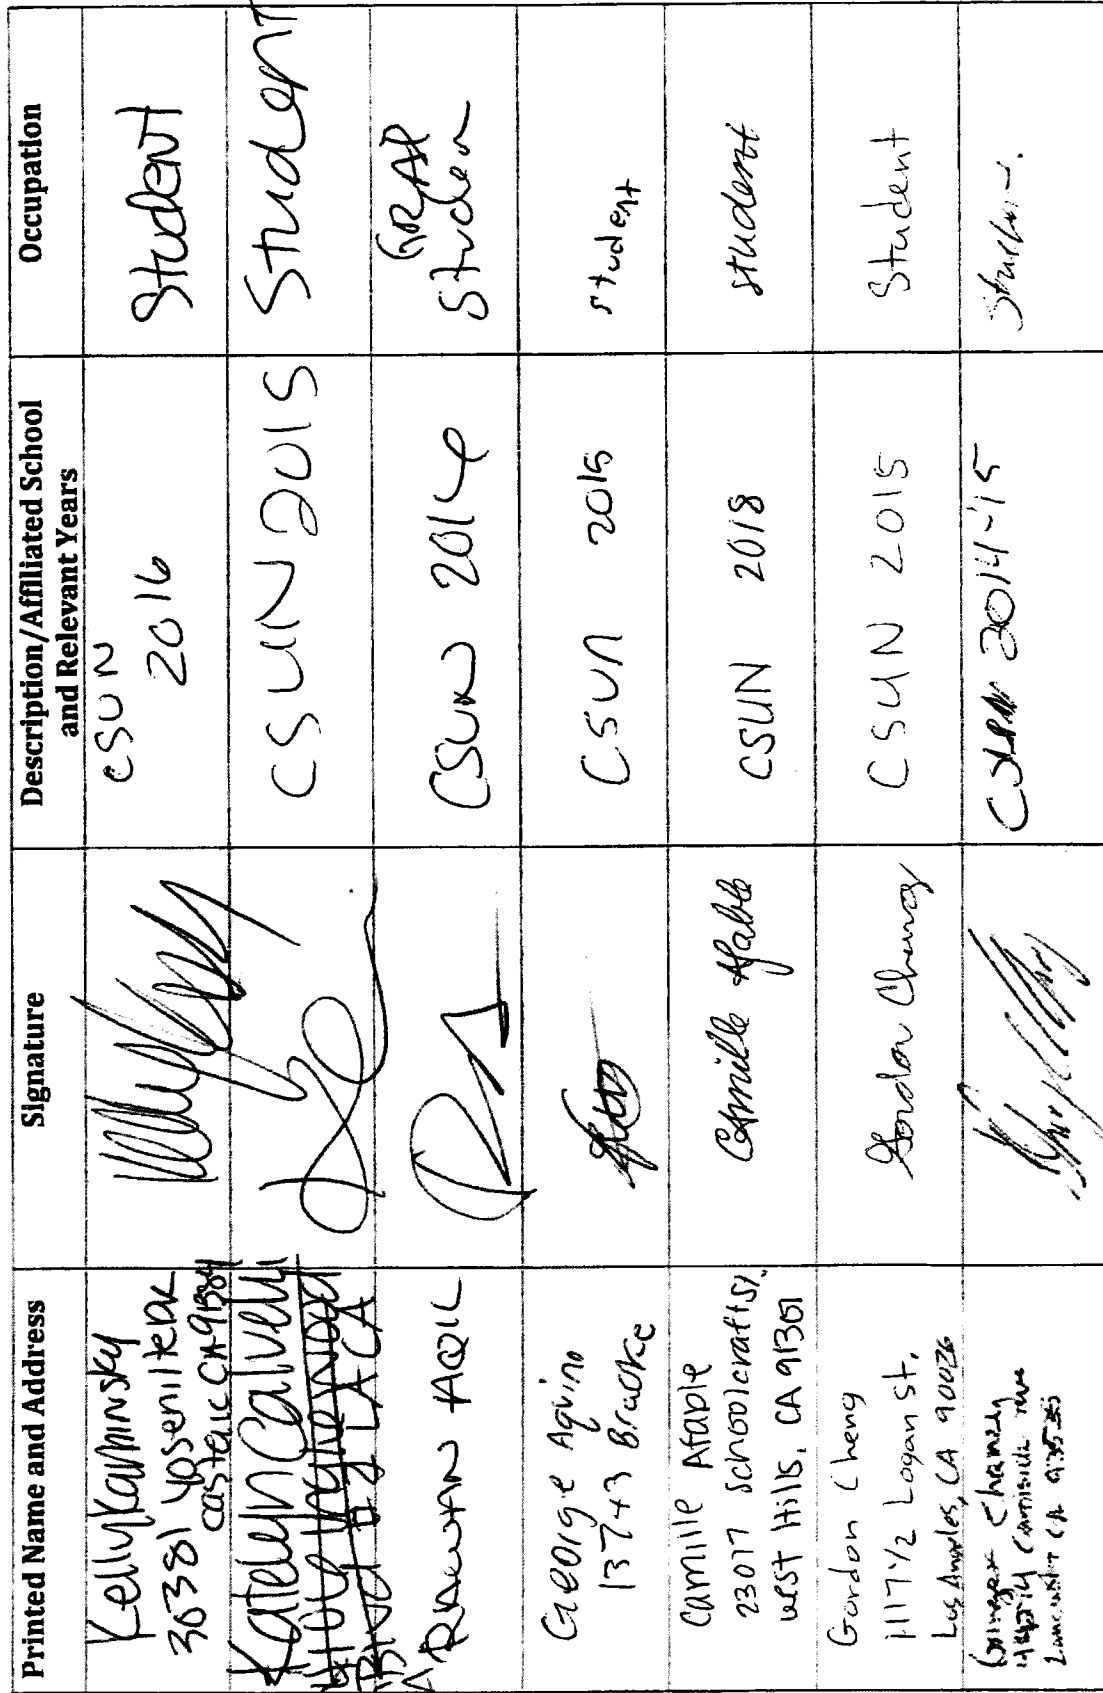 Printed Name and Address
Signature
Description/Affiliated School
and Relevant Years
Occupation
Kelly Kaminsky
30381 Yosemite
Castaic CA 91384
CSUN
2016
Student
Katelyn Calvelli
LA CA
CSUN 2015
Student
AQIL
CSUN 2014
GRAD
Student
George Aquino
13743 Bracke
CSUN 2015
student
Camille Afable
23017 schoolcraft st.
West Hills, CA 91307
Camille Afable
CSUN 2018
student
Gordon Cheng
1117 1/2 Logan St.
Los Angeles, CA 90026
Gordon Cheng
CSUN 2015
Student
CSUN 2014-15